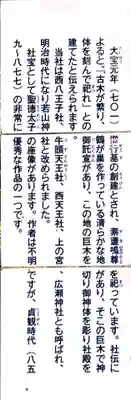 大宝元年（七〇一）僧行基の創建とされ、素盞鳴尊を祀っています。社伝に
よると、「古木が繁り、鶴が巣を作っている清らかな地があり、そこの巨木で神
体を刻んで祀れ」との御託宣があり、この地の巨木を切り御神体を彫り社殿を
建てたと伝えられます。
当社は西八王子社、牛頭天王社、西天王社、上の宮、広瀬神社とも呼ばれ、
明治時代になり若山神社と改められました。
社宝として聖徳太子の座像があります。作者は不明ですが、貞観時代（八五
九〜八七七）の非常に優秀な作品の一つです。